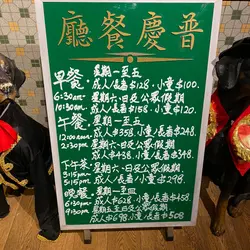 廳餐慶普
早餐 星期一至五
6:30am- 成人/長者$128. 小童$100.
10:30am 星期六.日及公眾假期
成人/長者$158. 小童$120.
午餐 星期一至五
12:00nn- 成人$358. 小童/長者$248.
2:30pm 星期六.日及公眾假期
成人$438. 小童/長者$348.
下午茶 星期六.日及公眾假期
3:15pm- 成人$348.
5:15pm 小童/長者$248.
晚餐 星期一至四
6:30pm- 成人$628. 小童/長者$458
9:30pm 星期五至日及公眾假期
成人$698. 小童/長者$508